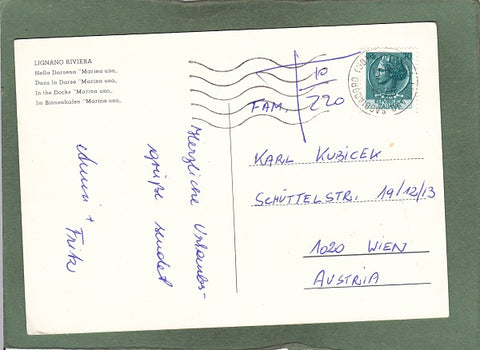 LIGNANO RIVIERA
Nella Darsena "Marina uno„
Dans la Darse "Marina uno„
In the Docks "Marina uno„
Im Binnenhafen "Marina uno„
10
220
FAM,
KARL KUBICEK
SCHÜTTELSTR. 19/12/13
1020 WIEN
AUSTRIA
Herzliche Urlaubs-
grüße sendet
Anni + Fritz